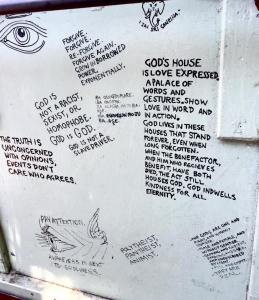 I AM SRI GANESHA.
FORGIVE.
FORGIVE.
RE-FORGIVE.
FORGIVE AGAIN.
GROW IN BORROWED
POWER,
EXPONENTIALLY.
GOD'S HOUSE
IS LOVE EXPRESSED,
A PALACE OF
WORDS AND
GESTURES. SHOW
LOVE IN WORD AND
IN ACTION.
GOD LIVES IN THESE
HOUSES THAT STAND
FOREVER, EVEN WHEN
LONG FORGOTTEN.
WHEN THE BENEFACTOR,
AND HIM WHO RECEIVES
BENEFIT, HAVE BOTH
DIED, THE ACT STILL
HOUSES GOD. GOD INDWELLS
KINDNESS FOR ALL
ETERNITY.
GOD IS
NOT A RACIST,
SEXIST, OR
HOMOPHOBE.
GOD IS GOD.
GOD IS NOT A
SLAVE DRIVER.
THE TRUTH IS
UNCONCERNED
WITH OPINIONS.
EVENTS DON'T
CARE WHO AGREES.
PAY ATTENTION.
AWARENESS IS NEXT
TO GODLINESS.
POLYTHEIST,
PANTHEIST,
ANIMIST.